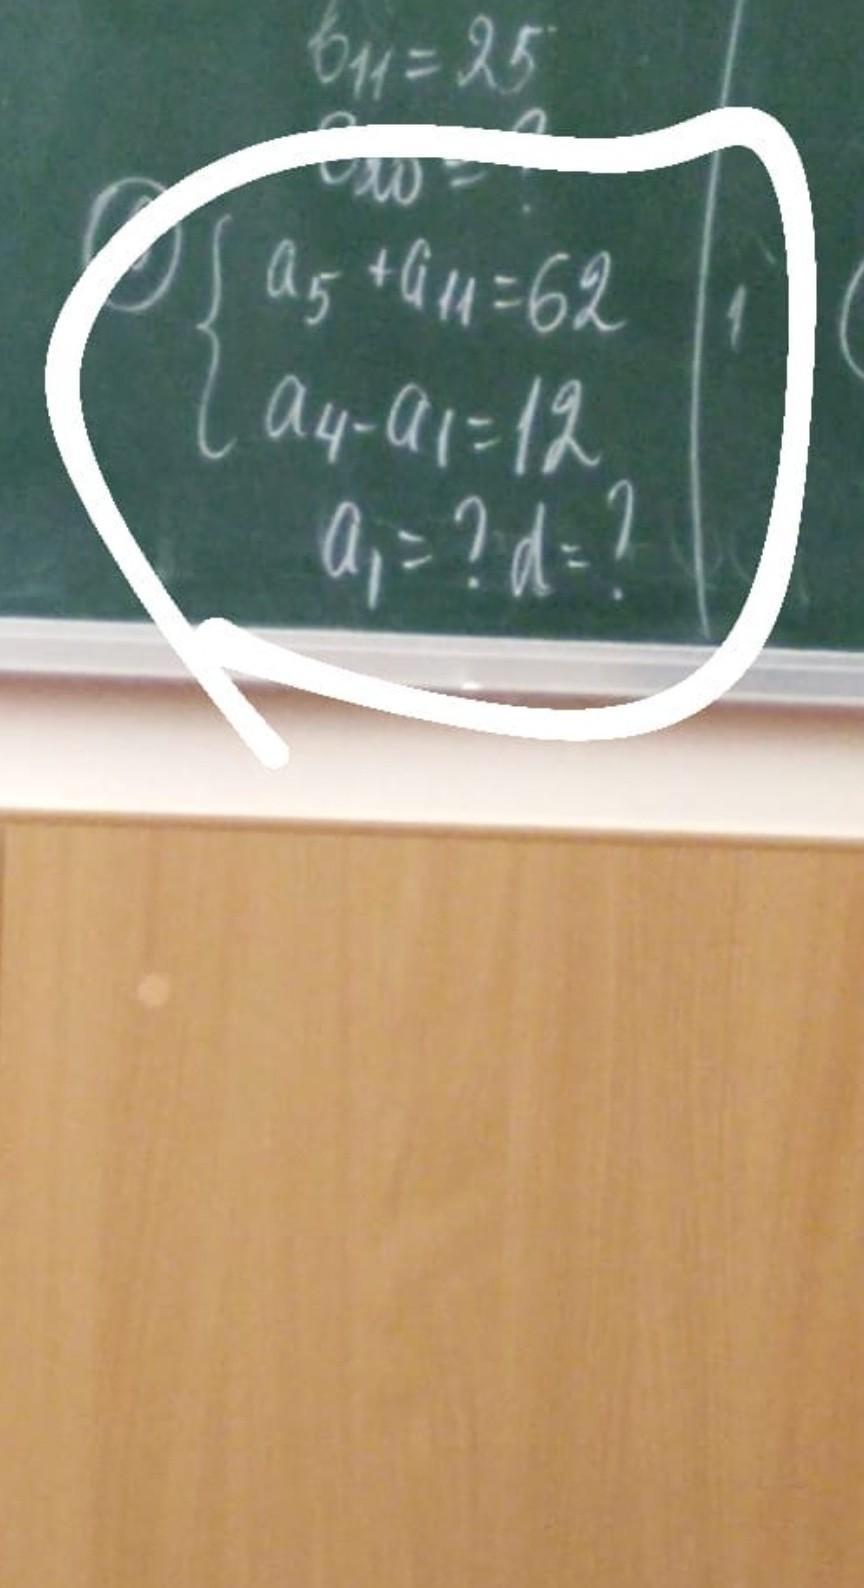 b₁₁ = 25
b₂₀ = ?
{ a₅ + a₁₁ = 62
a₄ - a₁ = 12
a₁ = ? d = ?
1